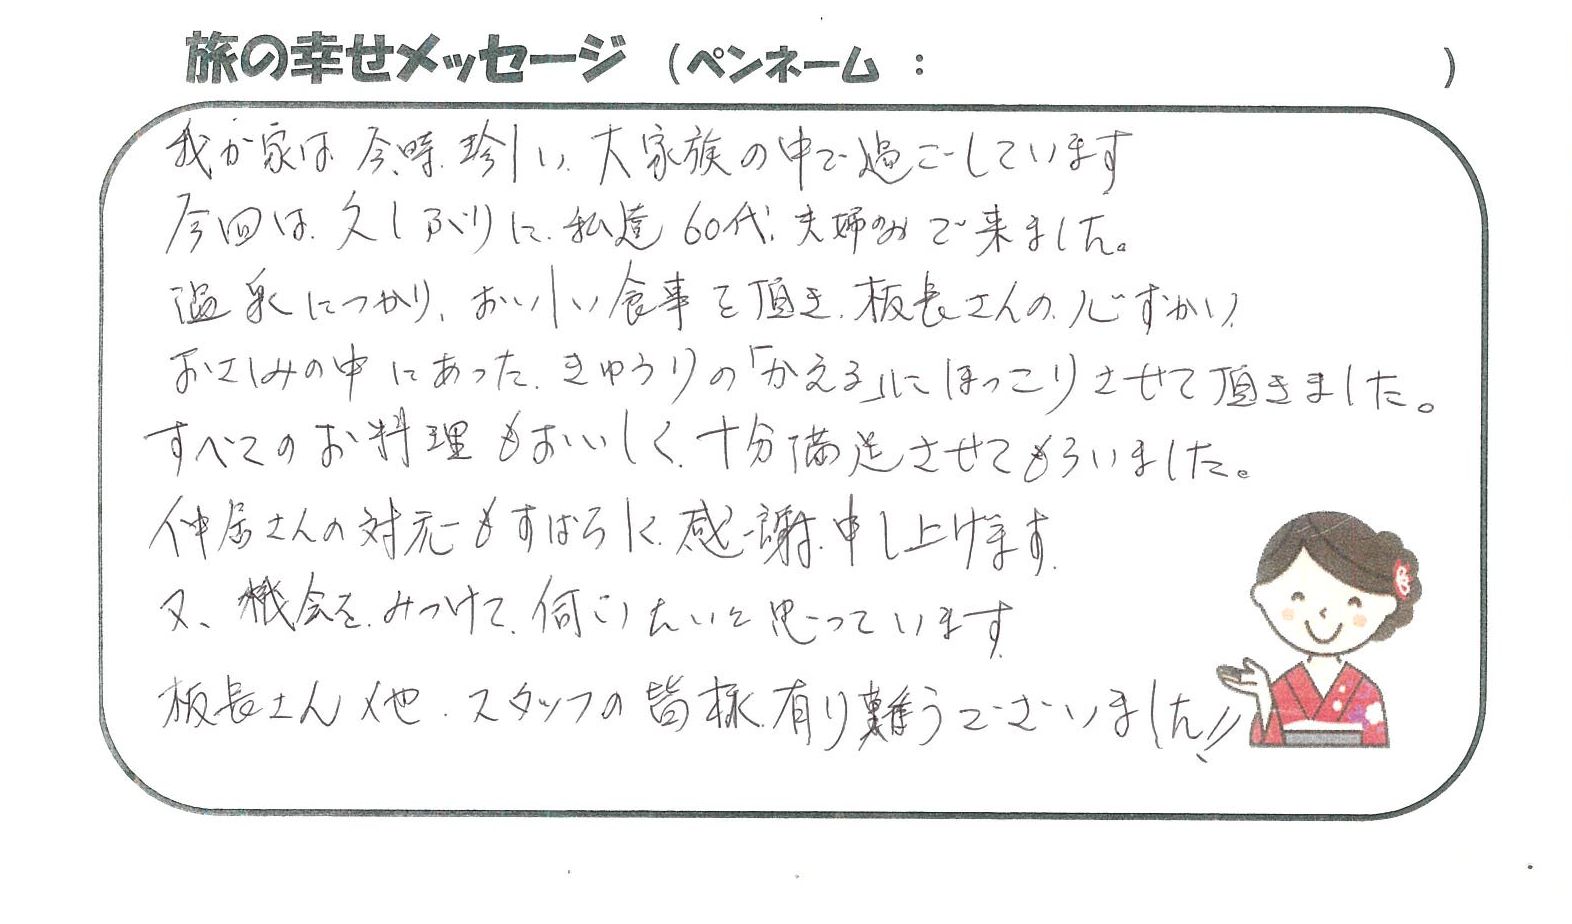 旅の幸せメッセージ （ペンネーム ： ）
我が家は今時、珍しい、大家族の中で過ごしています
今回は、久しぶりに、私達60代、夫婦のみで来ました。
温泉につかり、おいしい食事を頂き、板長さんの、心ずかい
おさしみの中にあった、きゅうりの「かえる」にほっこりさせて頂きました。
すべてのお料理もおいしく、十分満足させてもらいました。
仲居さんの対応もすばらしく、感謝、申し上げます。
又、機会を、みつけて、伺いたいと思っています
板長さん 他、スタッフの皆様、有り難うございました!!